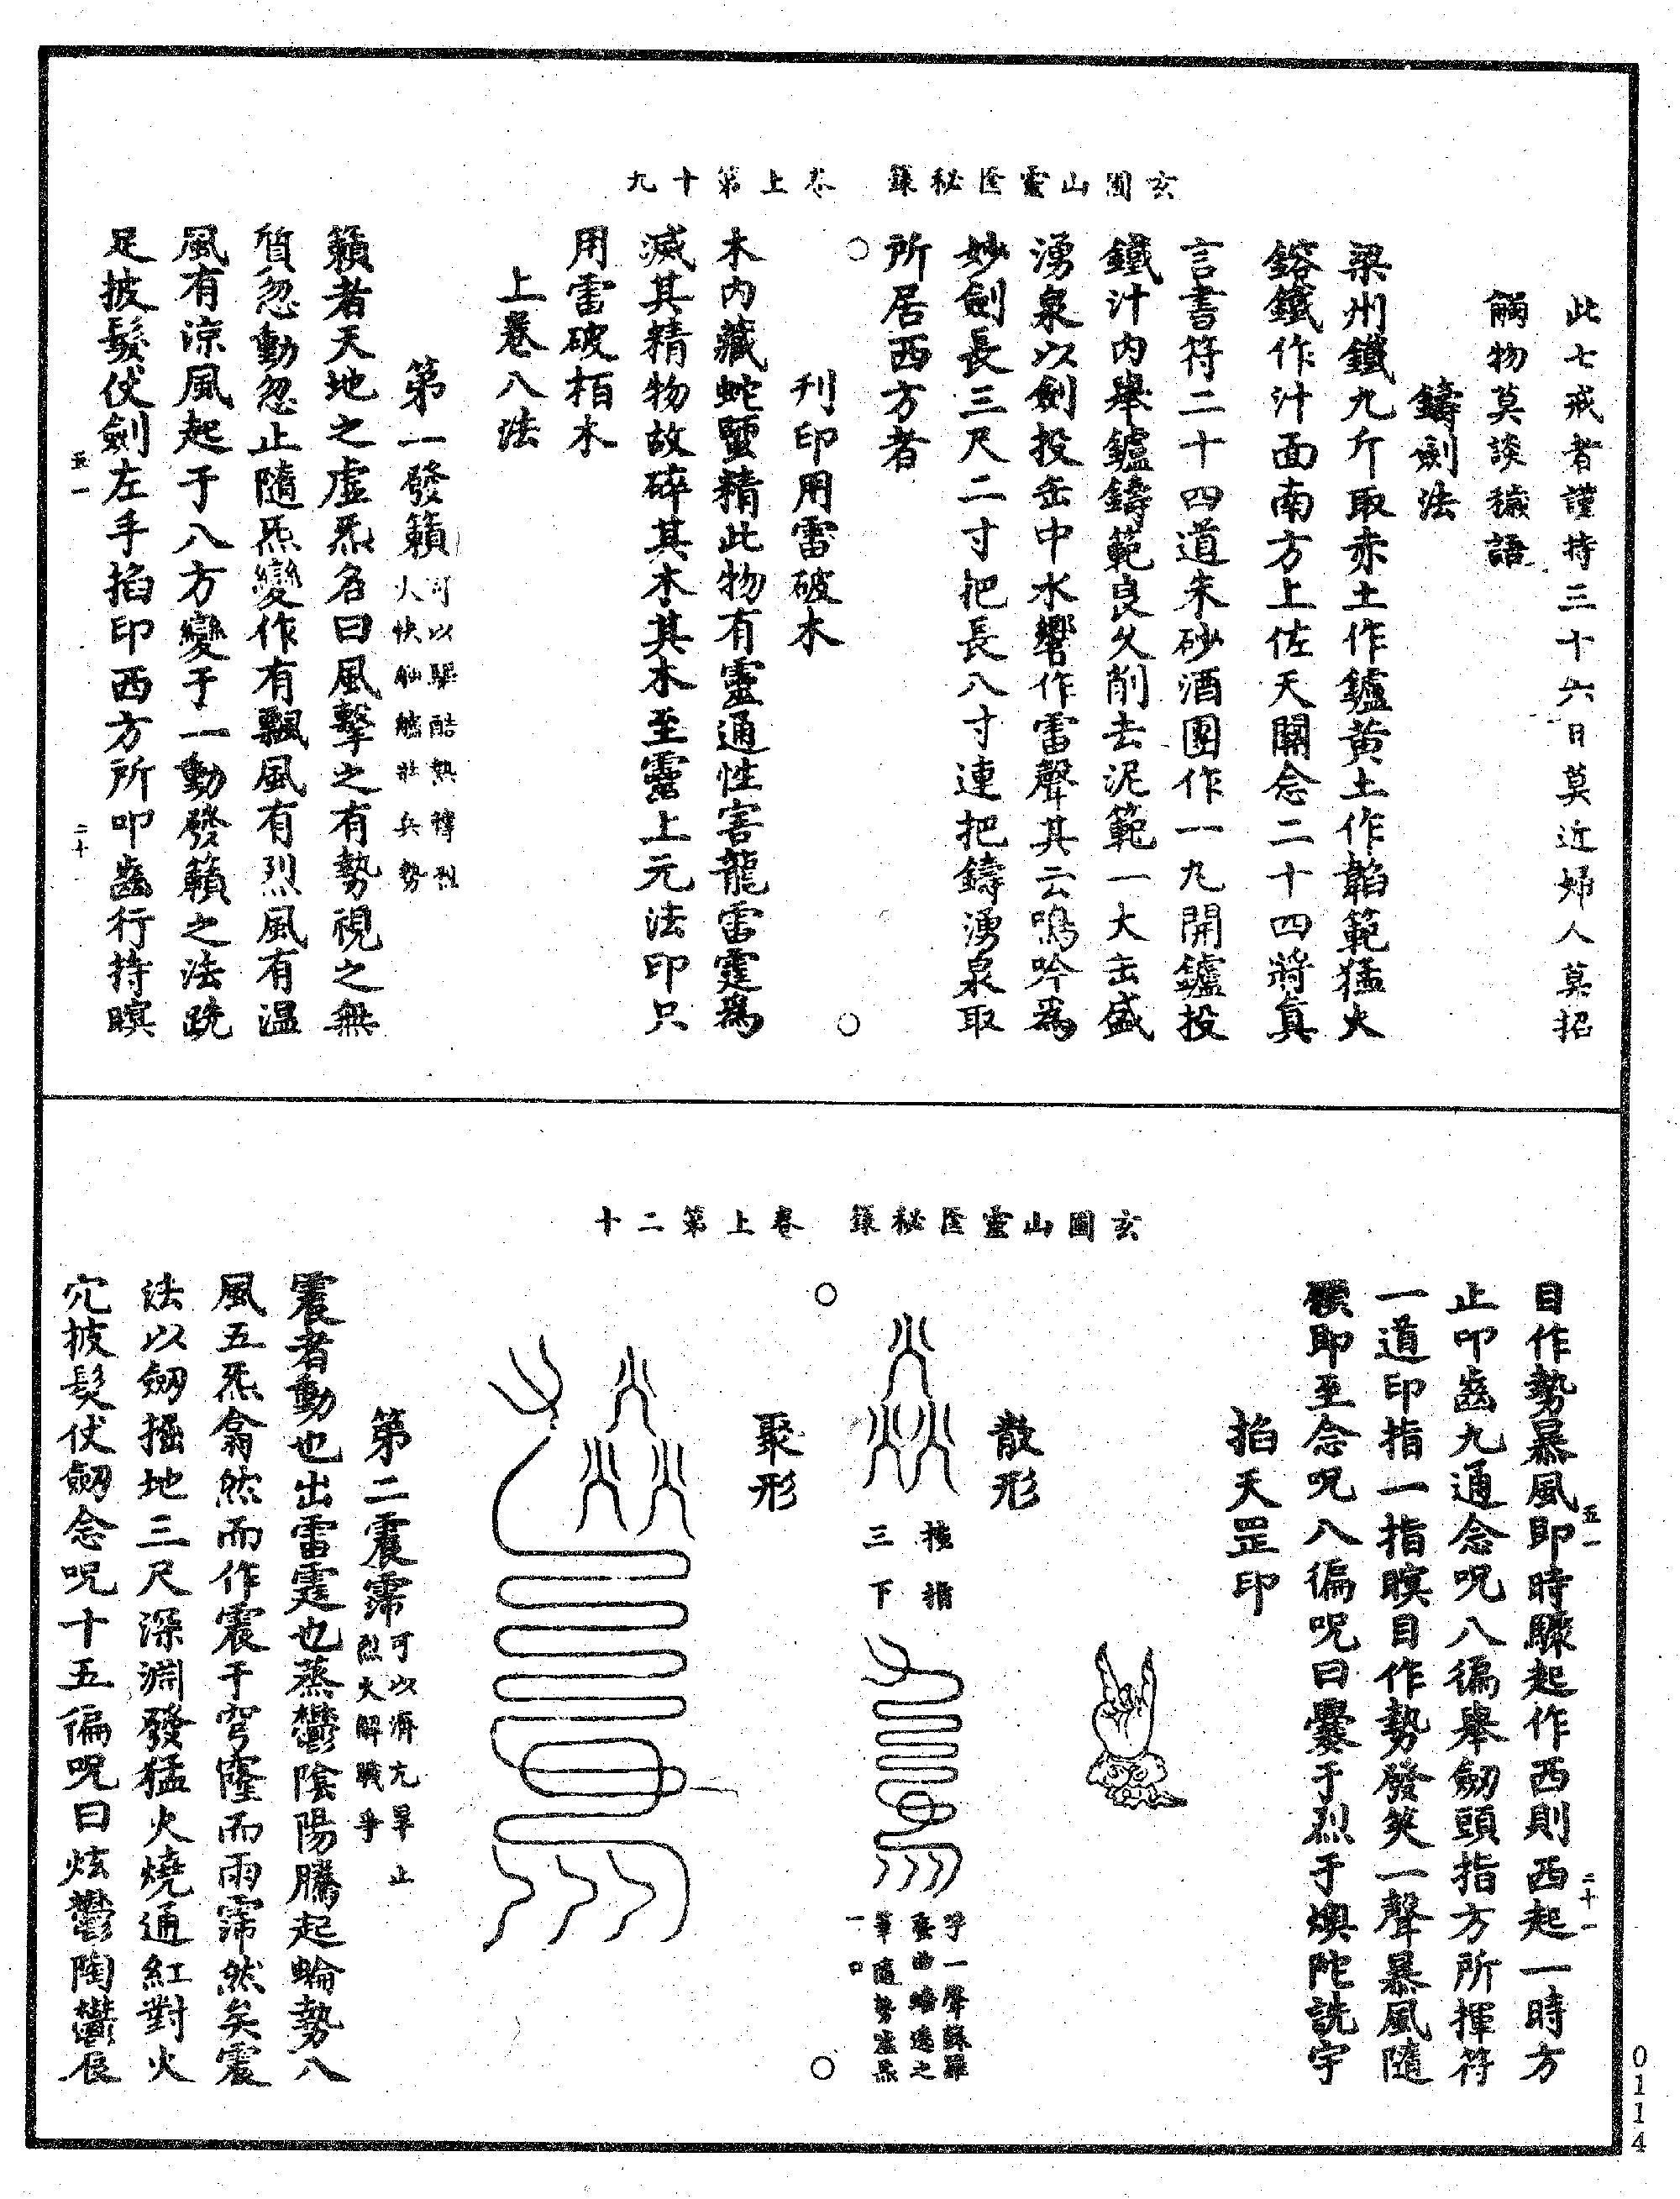 玄圃山靈匧秘籙　卷上第十九
此七戒者謹持三十六日莫近婦人莫招
觸物莫談穢語
鑄劍法
梁州鐵九斤取赤土作鑪黃土作韜範猛火
鎔鐵作汁面南方上佐天關念二十四將真
言書符二十四道朱砂酒團作一丸開鑪投
鐵汁內舉鑪鑄範良久削去泥範一大缶盛
湧泉以劍投缶中水響作雷聲其云鳴吟為
妙劍長三尺二寸把長八寸連把鑄湧泉取
所居西方者
○　○
刊印用雷破木
木內藏蛇蜃精此物有靈通性害龍雷霆為
滅其精物故碎其木其木至靈上元法印只
用雷破栢木
上卷八法
第一發籟可以驅酷熱禪烈
火快舳艫壯兵勢
籟者天地之虛炁名曰風擊之有勢視之無
質忽動忽止隨炁變作有飄風有烈風有溫
風有涼風起于八方變于一動發籟之法跣
足披髮仗劍左手掐印西方所叩齒行持瞑
五一　二十
玄圃山靈匧秘籙　卷上第二十
五一　二十一
目作勢暴風即時驟起作西則西起一時方
止叩齒九通念呪八徧舉劒頭指方所揮符
一道印指一指瞑目作勢發笑一聲暴風隨
顀即至念呪八徧呪曰爨于烈于燠陀詵宇
掐天罡印
散形
橫指
三下
呼一聲
蚕曲蟠遶之
筆隨勢
一口
○　○
聚形
第二震霈可以濟亢旱止
烈火解戰爭
震者動也出雷霆也蒸鬱陰陽騰起蜦勢八
風五炁翕然而作震于穹窿而雨霈然矣震
法以劒掘地三尺深淵發猛火燒通紅對火
穴披髮仗劒念呪十五徧呪曰炫鬱陶鬱晨
0114